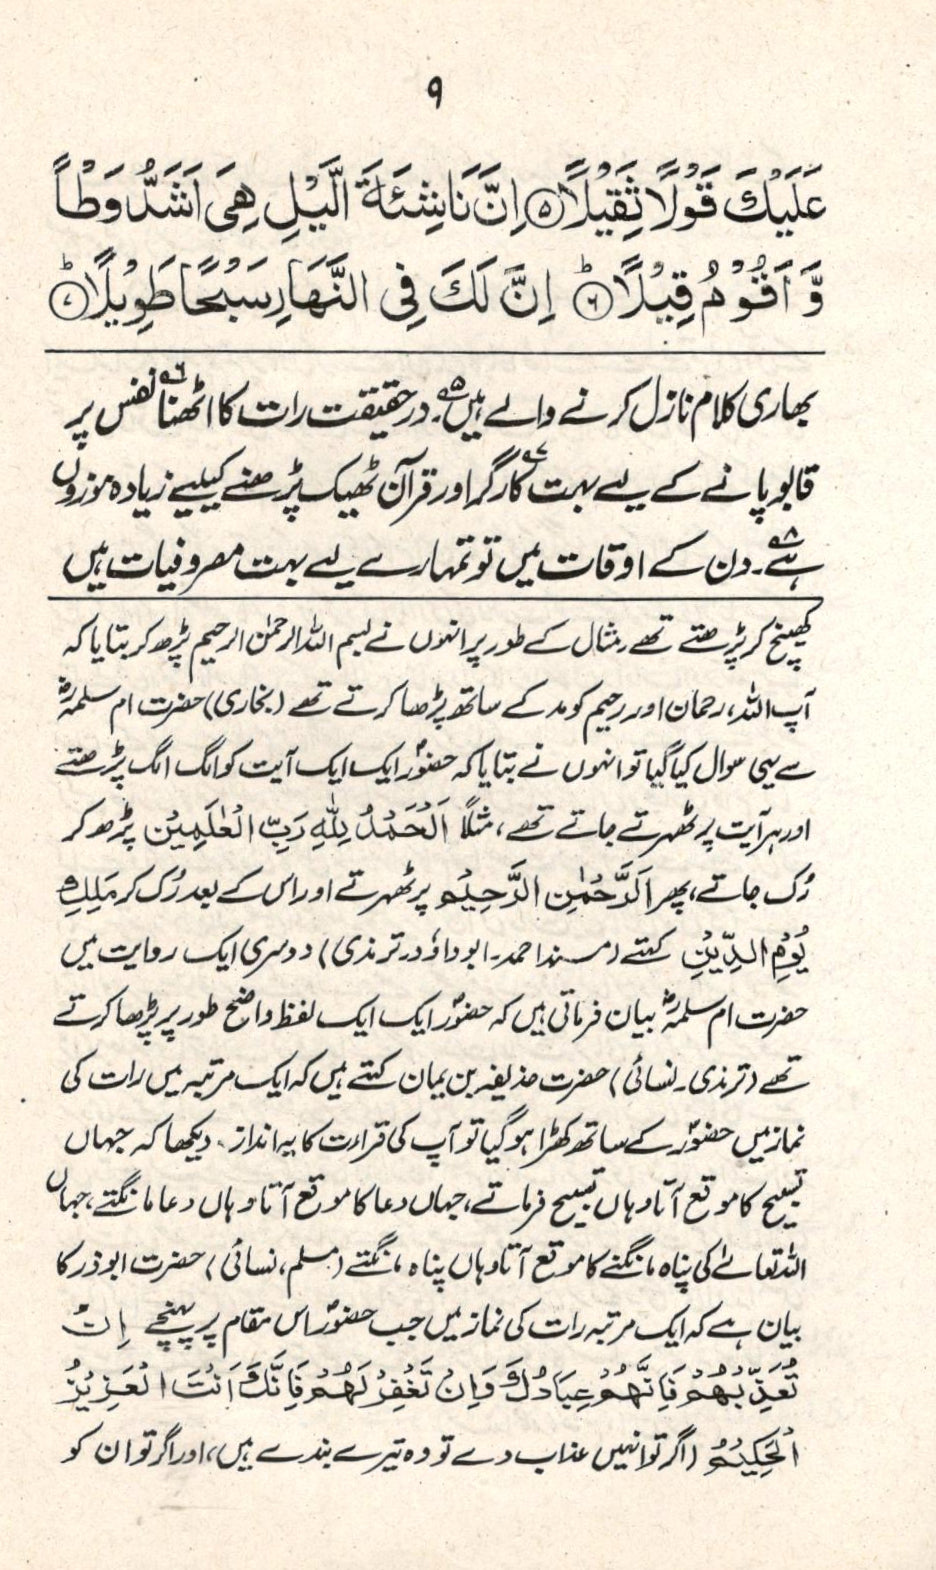 ۹
عَلَيْكَ قَوْلًا ثَقِيْلًا ۵ اِنَّ نَاشِئَةَ الَّيْلِ هِيَ اَشَدُّ وَطْأً
وَّ اَقْوَمُ قِيْلًا ۶ؕ اِنَّ لَكَ فِى النَّهَارِ سَبْحًا طَوِيْلًا ۷ؕ
بھاری کلام نازل کرنے والے ہیں۔۵ درحقیقت رات کا اٹھنا۶ نفس پر
قابو پانے کے لیے بہت کارگر۷ اور قرآن ٹھیک پڑھنے کیلیے زیادہ موزوں
ہے۔۸ دن کے اوقات میں تو تمہارے لیے بہت مصروفیات ہیں
کھینچ کر پڑھتے تھے۔ مثال کے طور پر انہوں نے بسم اللہ الرحمٰن الرحیم پڑھ کر بتایا کہ
آپ اللہ، رحمان اور رحیم کو مد کے ساتھ پڑھا کرتے تھے (بخاری) حضرت ام سلمہؓ
سے یہی سوال کیا گیا تو انہوں نے بتایا کہ حضورؐ ایک ایک آیت کو الگ الگ پڑھتے
اور ہر آیت پر ٹھہرتے جاتے تھے، مثلاً اَلْحَمْدُ لِلّٰهِ رَبِّ الْعٰلَمِيْنَ پڑھ کر
رُک جاتے، پھر اَلرَّحْمٰنِ الرَّحِيْمِ پر ٹھہرتے اور اس کے بعد رُک کر مٰلِكِ
يَوْمِ الدِّيْنِ کہتے (مسند احمد۔ ابوداؤد۔ ترمذی) دوسری ایک روایت میں
حضرت ام سلمہؓ بیان فرماتی ہیں کہ حضورؐ ایک ایک لفظ واضح طور پر پڑھا کرتے
تھے (ترمذی۔ نسائی) حضرت حذیفہ بن یمان کہتے ہیں کہ ایک مرتبہ میں رات کی
نماز میں حضورؐ کے ساتھ کھڑا ہو گیا تو آپ کی قراءت کا یہ انداز دیکھا کہ جہاں
تسبیح کا موقع آتا وہاں تسبیح فرماتے، جہاں دعا کا موقع آتا وہاں دعا مانگتے، جہاں
اللہ تعالےٰ کی پناہ مانگنے کا موقع آتا وہاں پناہ مانگتے (مسلم، نسائی) حضرت ابوذر کا
بیان ہے کہ ایک مرتبہ رات کی نماز میں جب حضورؐ اس مقام پر پہنچے اِنْ
تُعَذِّبْهُمْ فَاِنَّهُمْ عِبَادُكَ وَاِنْ تَغْفِرْ لَهُمْ فَاِنَّكَ اَنْتَ الْعَزِيْزُ
الْحَكِيْمُ (اگر تو انہیں عذاب دے تو وہ تیرے بندے ہیں، اور اگر تو ان کو